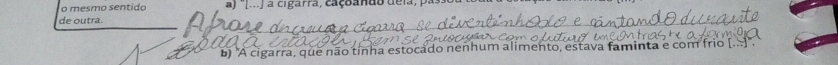 o mesmo sentido
de outra.
a) "[...] a cigarra, caçoando dela, passou
A frase descreve a cigarra se divertindo e cantando durante
toda a estação, sem se preocupar com o futuro
b) "A cigarra, que não tinha estocado nenhum alimento, estava faminta e com frio [...]".